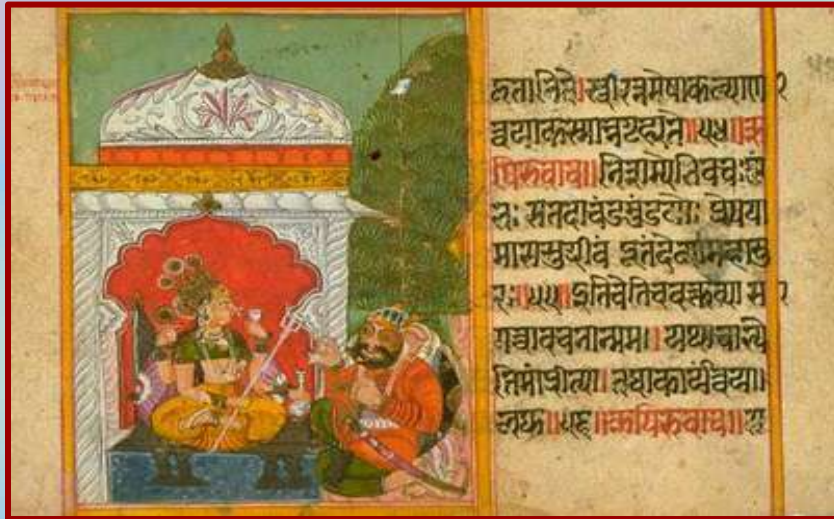 हृतानिते।स्त्रीरत्नमेषाकल्याणी
त्वयाकस्मान्नगृह्यते॥५४॥ऋ
षिरुवाच॥निशम्येतिवचःशुं
भः सतदाचंडमुंडयोः प्रेषया
माससुग्रीवं दूतंदेव्यामहासु
रः॥५५॥इतिचेतिचवक्तव्या सा
गत्वावचनान्मम॥यथाचाभ्ये
तिसंप्रीत्या।तथाकार्यंत्वया॥
लघु॥५६॥ऋषिरुवाच॥स